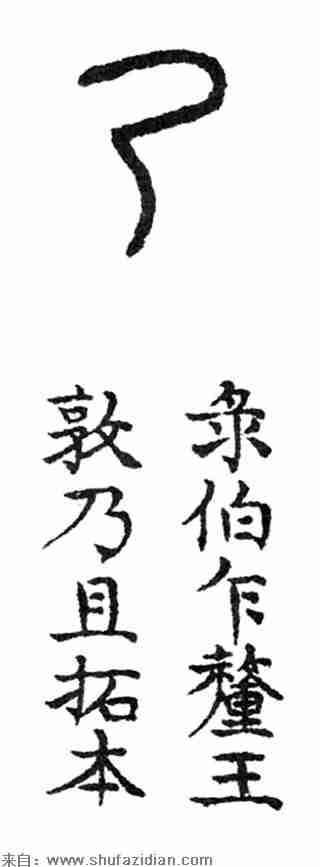 乃
彔伯乍釐王
敦乃且拓本
来自：www.shufazidian.com